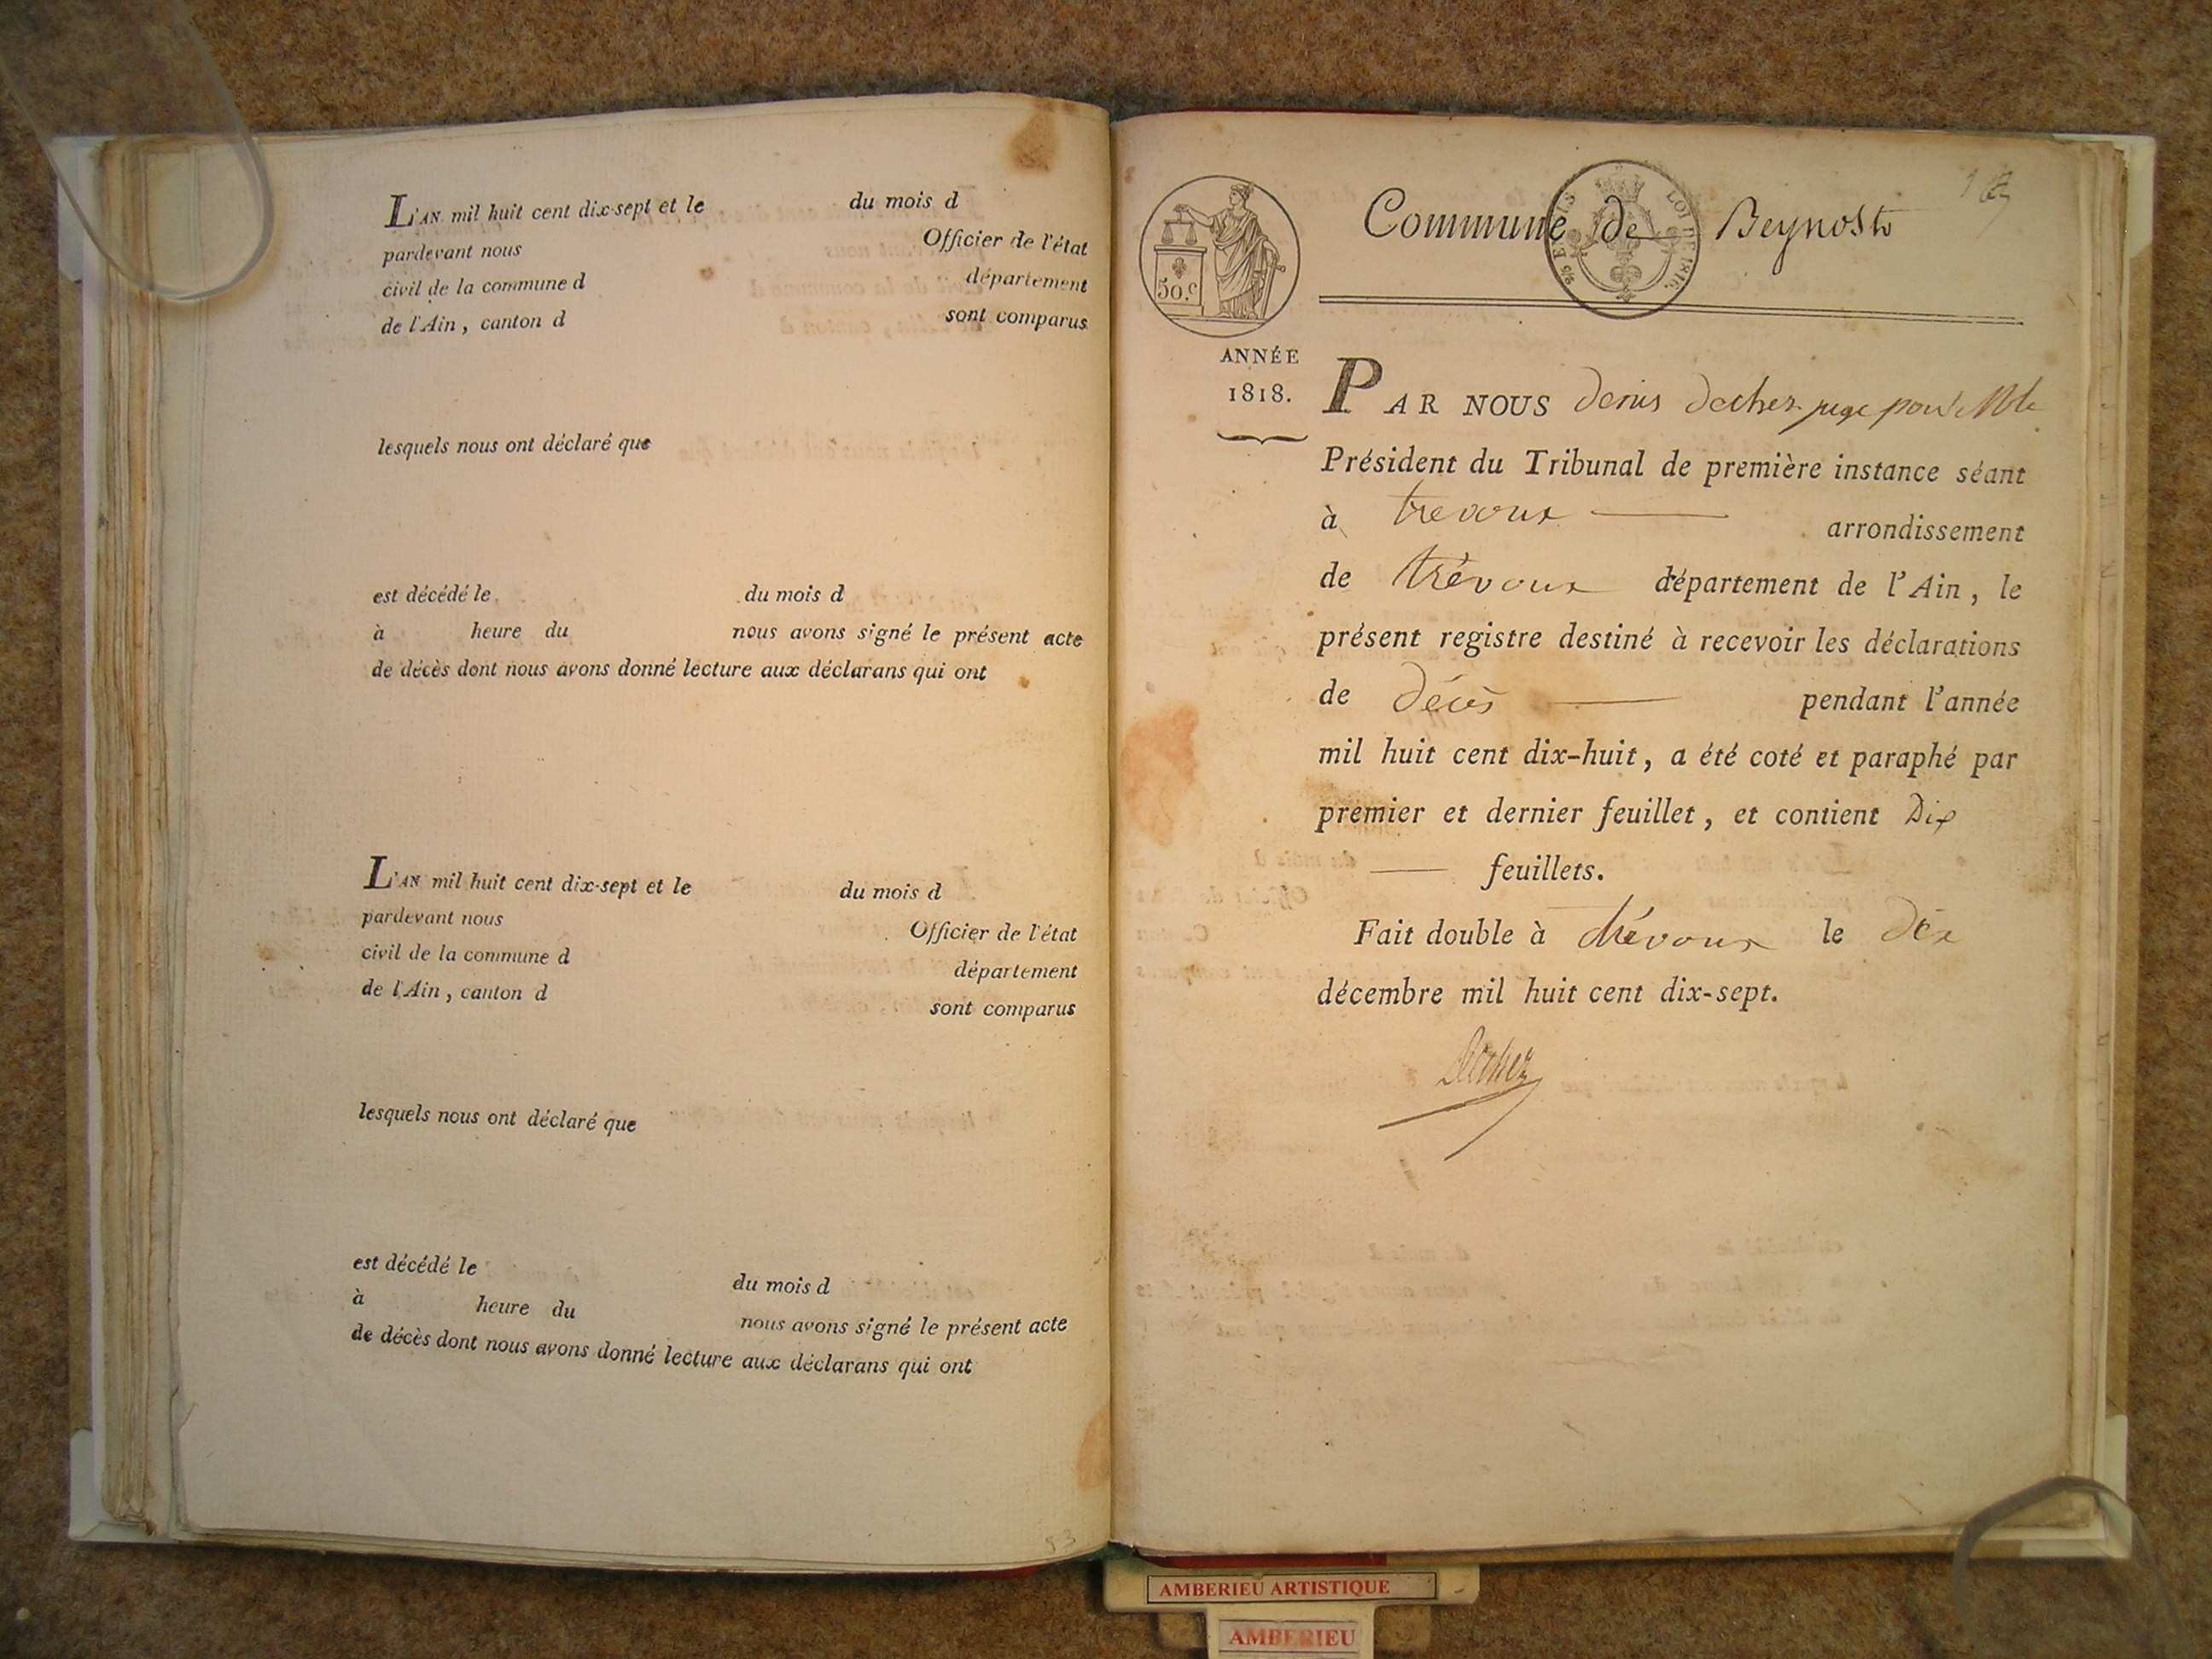 L'AN mil huit cent dix-sept et le du mois d
pardevant nous Officier de l'état
civil de la commune d département
de l'Ain, canton d sont comparus
lesquels nous ont déclaré que
est décédé le du mois d
à heure du nous avons signé le présent acte
de décès dont nous avons donné lecture aux déclarans qui ont
L'AN mil huit cent dix-sept et le du mois d
pardevant nous Officier de l'état
civil de la commune d département
de l'Ain, canton d sont comparus
lesquels nous ont déclaré que
est décédé le du mois d
à heure du nous avons signé le présent acte
de décès dont nous avons donné lecture aux déclarans qui ont
83
50.c
LOI DE 1816.
Commune de Beynost
ANNÉE
1818.
PAR NOUS denis juge pour
Président du Tribunal de première instance séant
à trevoux arrondissement
de trévoux département de l'Ain, le
présent registre destiné à recevoir les déclarations
de décès pendant l'année
mil huit cent dix-huit, a été coté et paraphé par
premier et dernier feuillet, et contient Dix
feuillets.
Fait double à trévoux le dix
décembre mil huit cent dix-sept.
AMBERIEU ARTISTIQUE
AMBERIEU